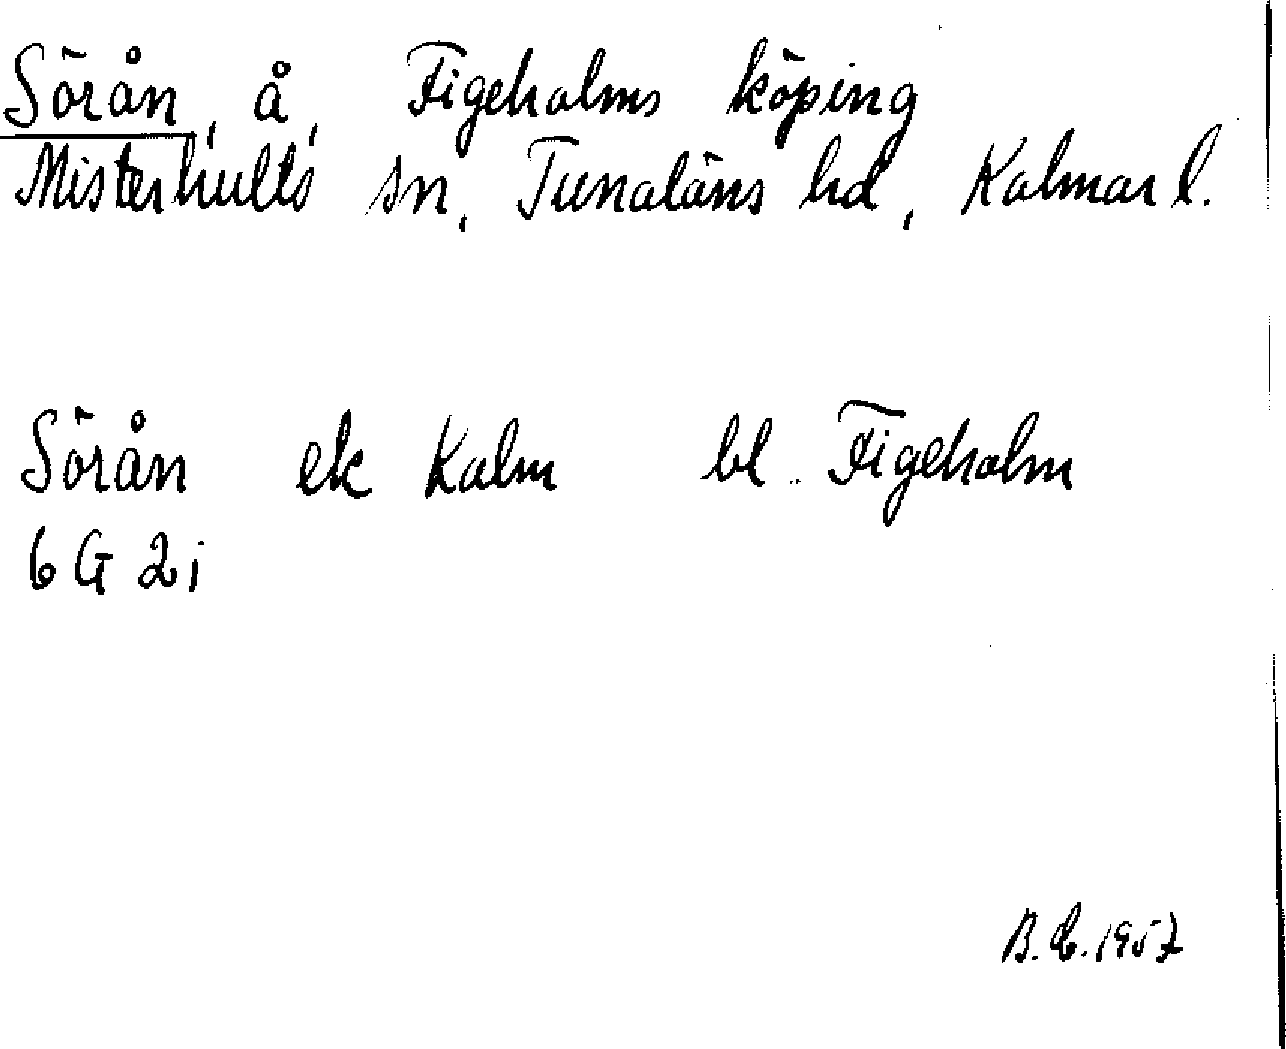 Sörån, å, Figeholms köping
Misterhults sn, Tunaläns hd, Kalmar l.
Sörån ek Kalm bl. Figeholm
6 G 2 i
1957